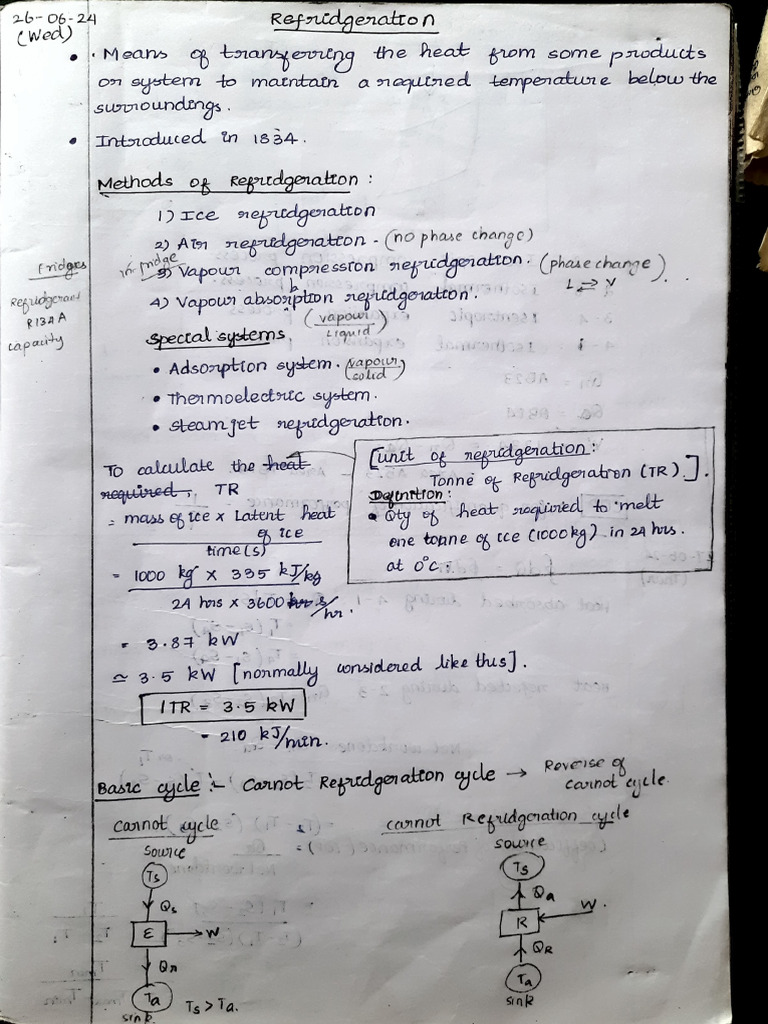 26-06-24
(Wed)
Refridgeration
• Means of transferring the heat from some products
or system to maintain a required temperature below the
surroundings.
• Introduced in 1834.
Methods of Refridgeration :
1) Ice refridgeration
2) Air refridgeration - (no phase change)
in fridge
3) Vapour compression refridgeration. (phase change)
L ⇌ V
4) Vapour absorption refridgeration.
(vapour/Liquid)
Fridges
Refridgerant
R134A
capacity
Special systems
• Adsorption system. (vapour/solid)
• Thermoelectric system.
• steam jet refridgeration.
[unit of refridgeration:
Tonne of Refridgeration (TR)].
Definition:
• Qty of heat required to melt
one tonne of ice (1000kg) in 24 hrs.
at 0°c.
To calculate the heat
required, TR
= mass of ice x Latent heat
of ice
time(s)
= 1000 kg x 335 kJ/kg
24 hrs x 3600 s/hr.
= 3.87 kW
≃ 3.5 kW [normally considered like this].
1TR = 3.5 kW
= 210 kJ/min.
Basic cycle :- Carnot Refridgeration cycle → Reverse of
carnot cycle.
carnot cycle
carnot Refridgeration cycle
source
Ts
Qs
E → W
QR
Ta
sink
Ts > Ta.
source
Ts
Qa
R W.
QR
Ta
sink